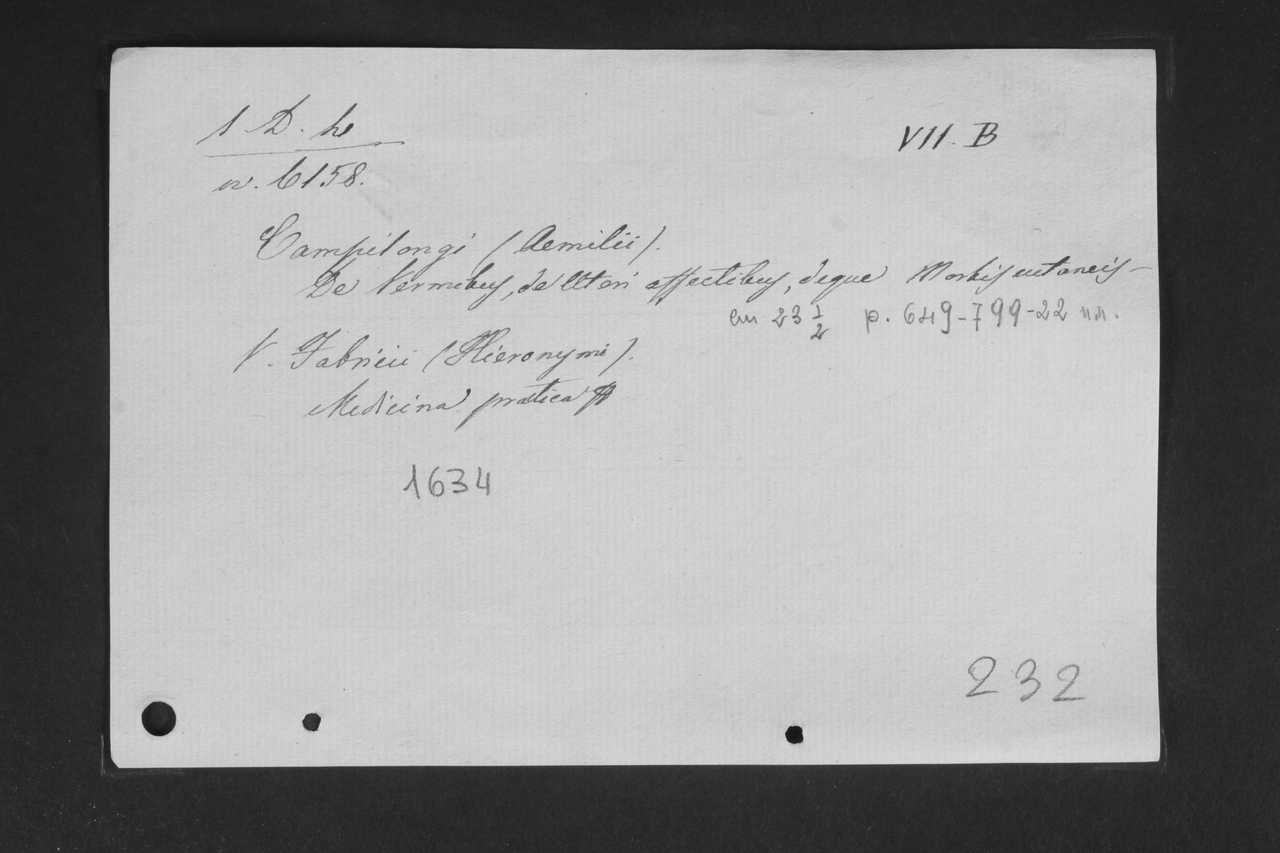 1 D. he
nr. 6158.
VII. B
Campilongi (Aemilii).
De Vermibus, de Uteri affectibus, deque Morbis cutaneis –
cm 23 1/2 p. 649-799-22 nn.
V. Fabricii (Hieronymi).
Medicina pratica
1634
232